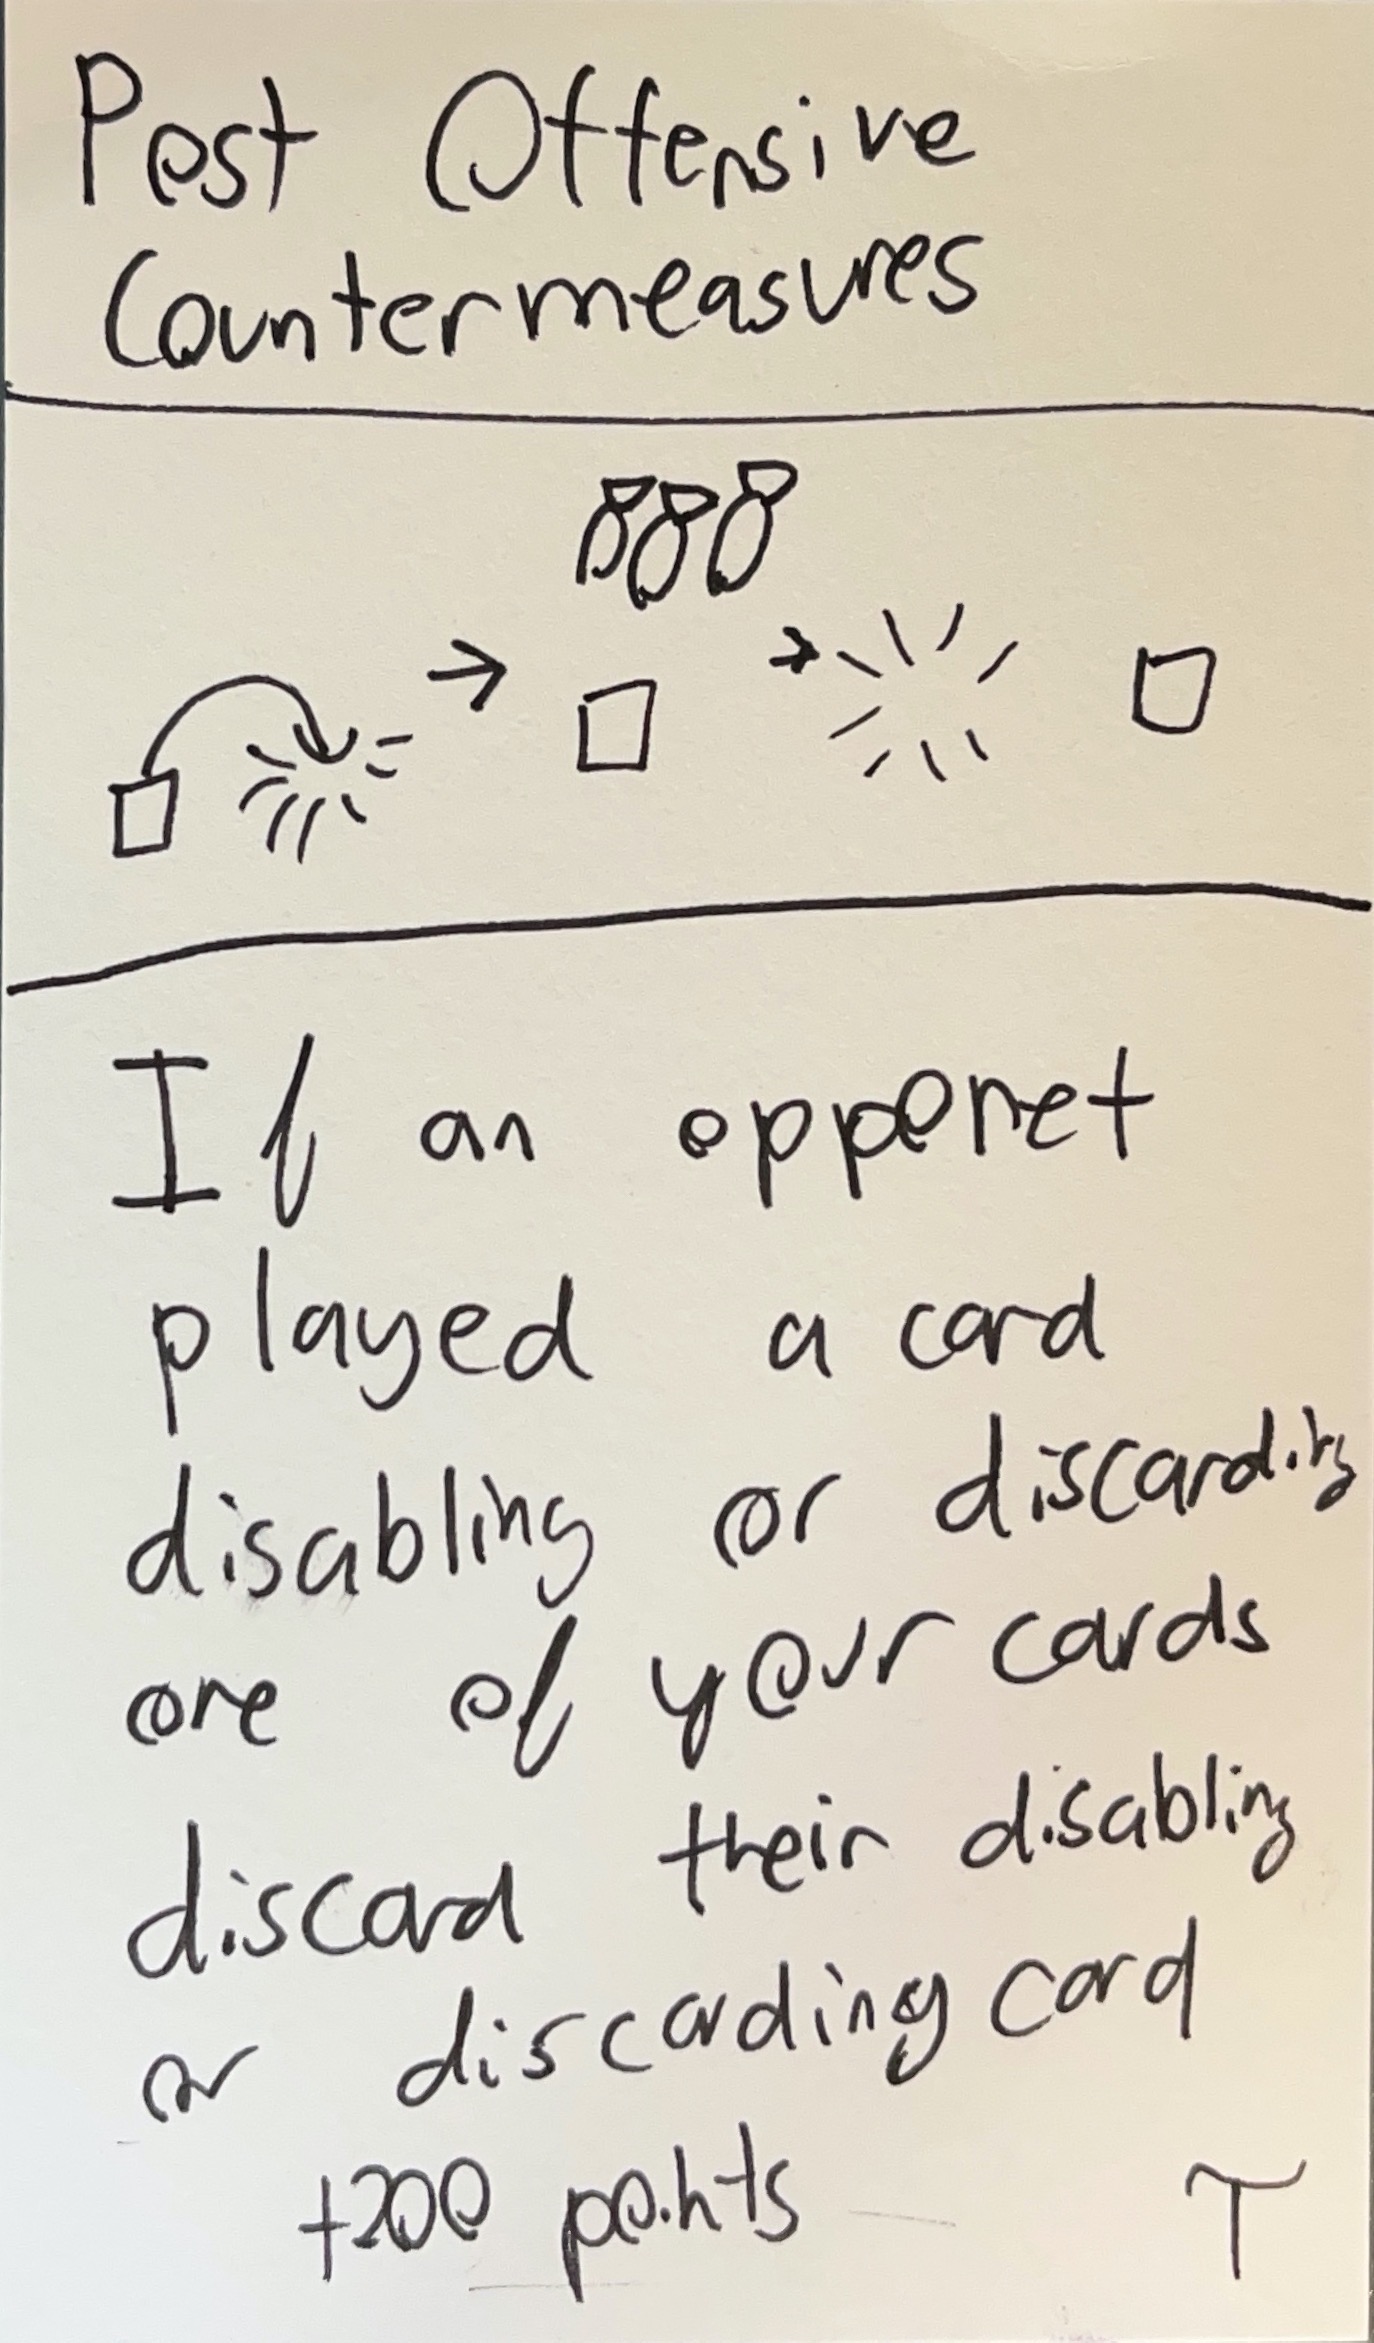 Post Offensive
Countermeasures
If an opponet
played a card
disabling or discarding
one of your cards
discard their disabling
or discarding card
+200 points T